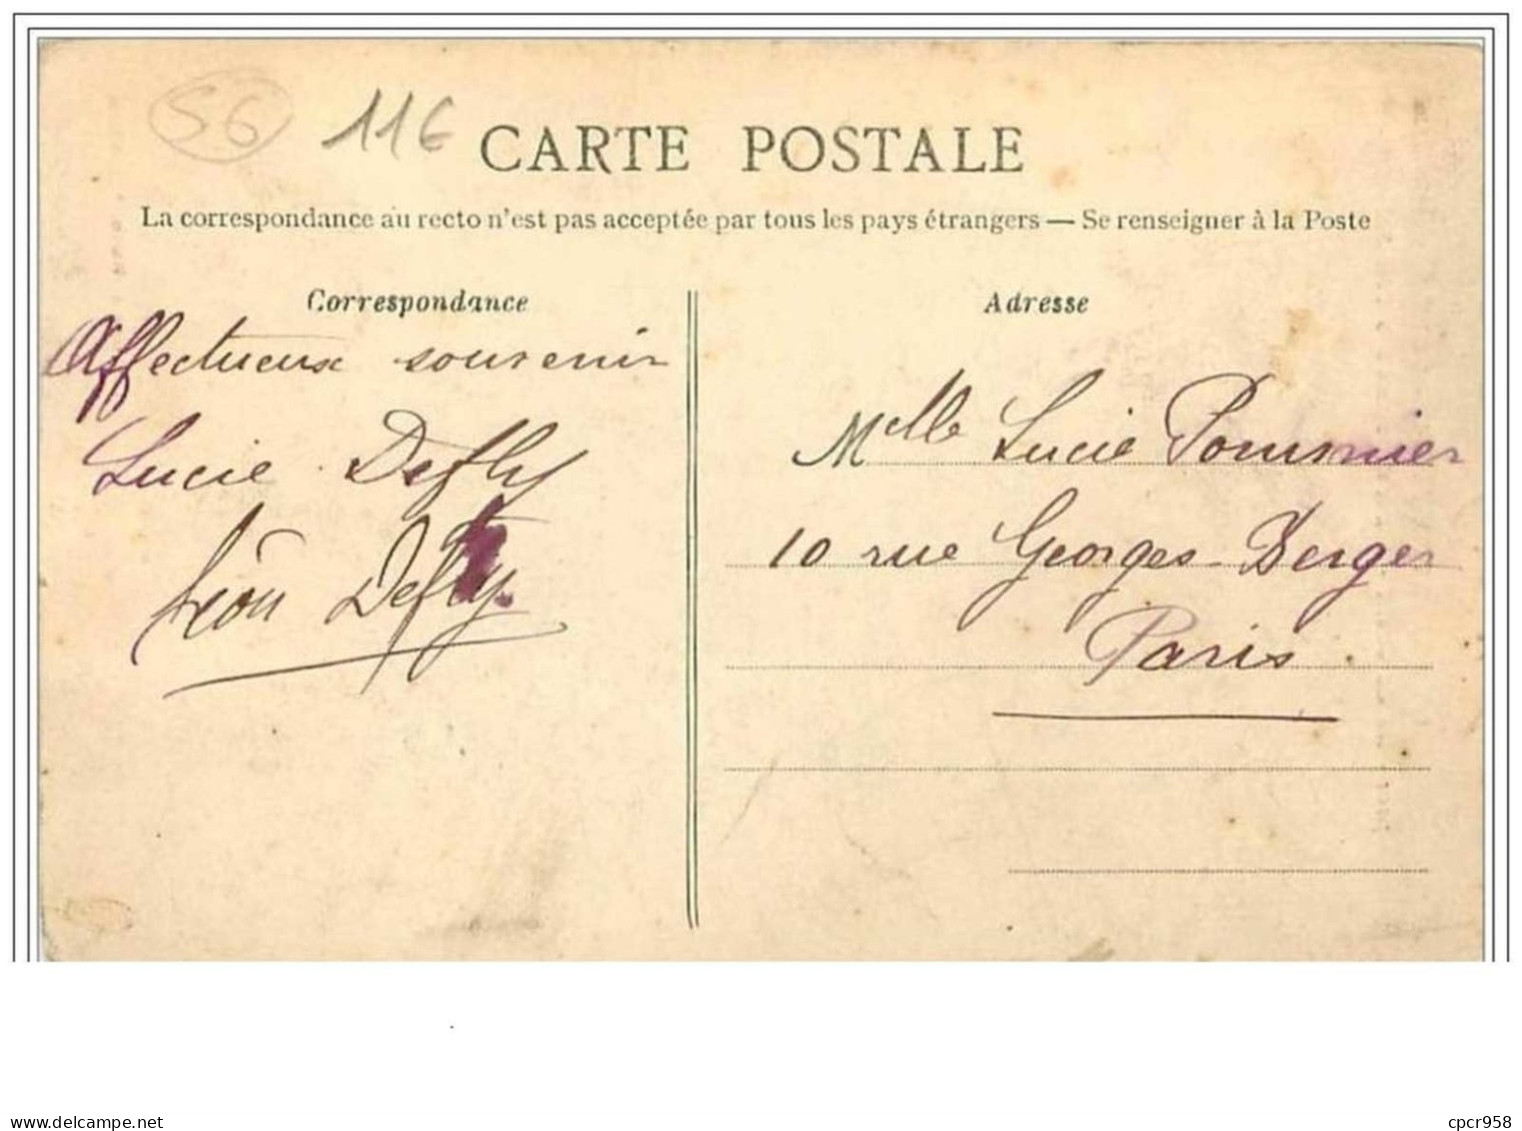 56 11€
CARTE POSTALE
La correspondance au recto n'est pas acceptée par tous les pays étrangers — Se renseigner à la Poste
Correspondance
Affectueux souvenir
Lucie Defly
Léon Defly
Adresse
Melle Lucie Pommier
10 rue Georges-Berger
Paris.
delcampe.net
cpcr958